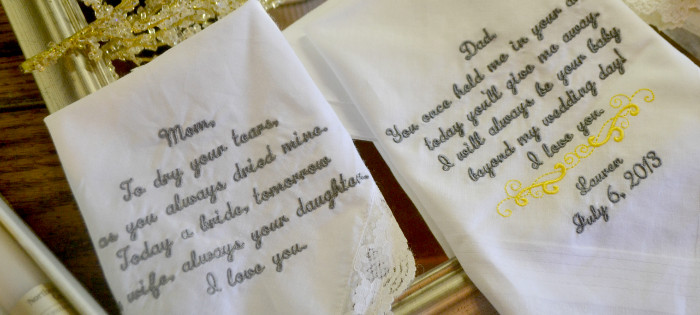 Mom,
To dry your tears,
as you always dried mine.
Today a bride, tomorrow
wife, always your daughter.
I love you.
Dad,
You once held me in your a
today you'll give me away.
I will always be your baby
beyond my wedding day!
I love you
Lauren
July 6, 2013